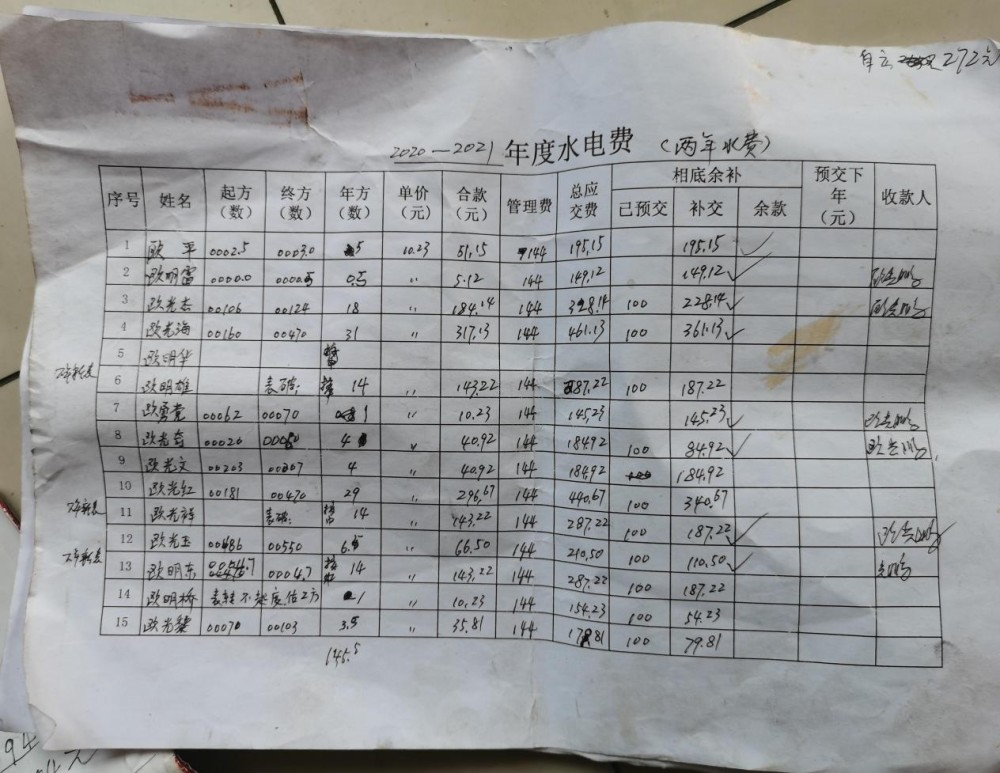 自立 272元
2020—2021 年度水电费 (两年水费)
序号 姓名 起方(数) 终方(数) 年方(数) 单价(元) 合款(元) 管理费 总应交费 相底余补 已预交 补交 余款 预交下年(元) 收款人
1 欧平 0002.5 0003.0 5 10.23 51.15 144 195.15 195.15
2 欧明富 0000.0 0000.5 0.5 〃 5.12 144 149.12 149.12
3 欧光杰 00106 00124 18 〃 184.14 144 328.14 100 228.14
4 欧光海 00160 00470 31 〃 317.13 144 461.13 100 361.13
5 欧明华
6 欧明雄 表破: 14 〃 143.22 144 287.22 100 187.22
7 欧勇党 00062 00070 1 〃 10.23 144 145.23 145.23
8 欧光奇 00020 00060 4 〃 40.92 144 184.92 100 84.92
9 欧光文 00203 00207 4 〃 40.92 144 184.92 184.92
10 欧光红 00181 00470 29 〃 296.67 144 440.67 100 340.67
11 欧光祥 表破: 14 〃 143.22 144 287.22 100 187.22
12 欧光玉 00486 00550 6.5 〃 66.50 144 210.50 100 110.50
13 欧明东 0004.7 14 〃 143.22 144 287.22 100 187.22
14 欧明桥 表转不走度估2方 1 〃 10.23 144 154.23 100 54.23
15 欧光黎 00070 00103 3.5 〃 35.81 144 179.81 100 79.81
145.5
94
元